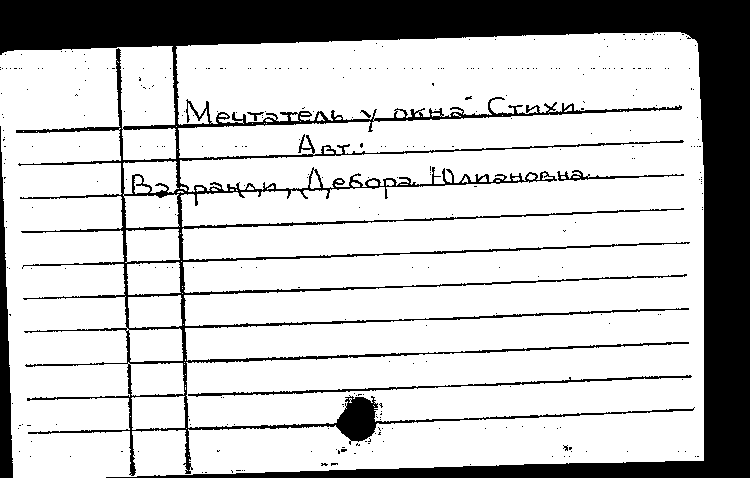 Мечтатель у окна. Стихи.
Авт.:
Вааранди, Дебора Юлиановна.